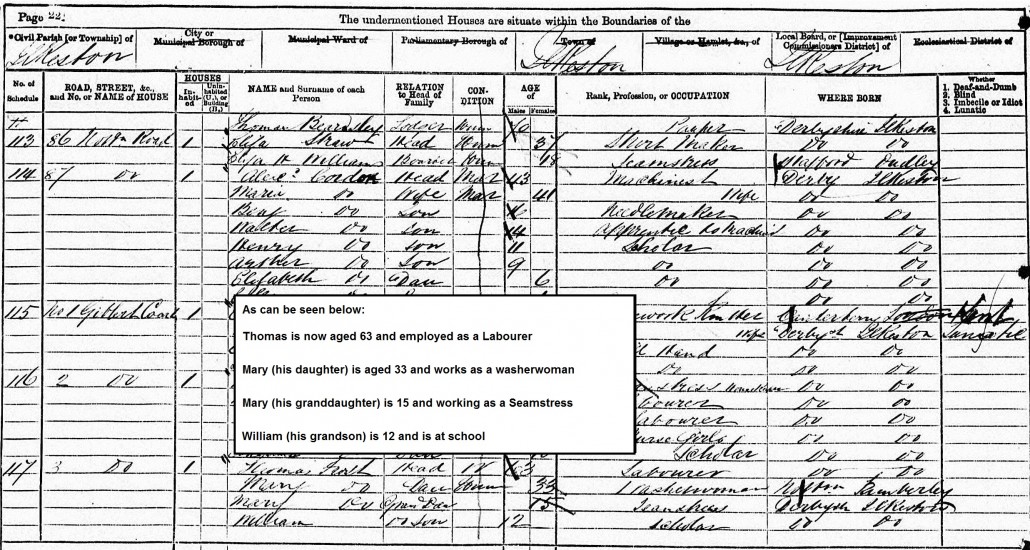 Page 22
The undermentioned Houses are situate within the Boundaries of the
*Civil Parish [or Township] of
City or Municipal Borough of
Municipal Ward of
Parliamentary Borough of
Town of
Village or Hamlet, &c., of
Local Board, or [Improvement Commissioners District] of
Ecclesiastical District of
Ilkeston Ilkeston Ilkeston
No. of Schedule
ROAD, STREET, &c., and No. or NAME of HOUSE
HOUSES
In-habit-ed
Unin-habited (U.), or Building (B.)
NAME and Surname of each Person
RELATION to Head of Family
CON-DITION
AGE of
Males Females
Rank, Profession, or OCCUPATION
WHERE BORN
Whether
1. Deaf-and-Dumb
2. Blind
3. Imbecile or Idiot
4. Lunatic
Thomas Beardsley Lodger Unm Pauper Derbyshire Ilkeston
113 86 Road 1 Eliza Head Unm 37 Maker Do Do
Eliza H Williams Unm 18 Seamstress Stafford Dudley
114 87 Do 1 Gordon Head Mar 43 Machinist Derby Ilkeston
Maria Do Wife Mar 41 Wife Do Do
Do Son 16 Needlemaker Do Do
Walter Do Son 14 Apprentice to Do Do
Henry Do Son 11 Scholar Do Do
Arther Do Son 9 Do Do Do
Elizabeth Do Dau 6 Do Do Do
Do Do
115 No 1 Gilbert Court 1 Canterbury Kent
Wife Derby Ilkeston
Hand Do Do
Do Do Do
116 2 Do 1 Do Do
Labourer Do Do
Nurse Girl Do Do
Scholar Do Do
117 3 Do 1 Thomas Frost Head W 63 Labourer Do Do
Mary Do Dau Unm 33 Washerwoman
Mary Do Gran Dau 15 Seamstress Ilkeston
William Do Son 12 Scholar Do Do
As can be seen below:
Thomas is now aged 63 and employed as a Labourer
Mary (his daughter) is aged 33 and works as a washerwoman
Mary (his granddaughter) is 15 and working as a Seamstress
William (his grandson) is 12 and is at school